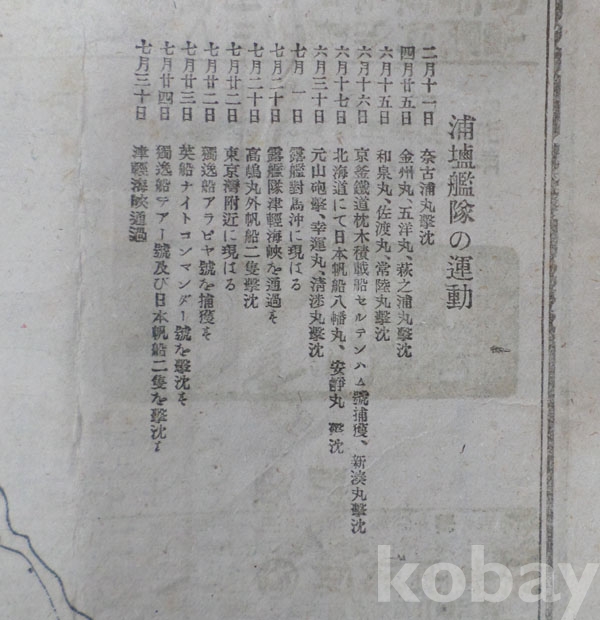 浦塩艦隊の運動
二月十一日 奈古浦丸擊沈
四月廿五日 金州丸、五洋丸、萩之浦丸擊沈
六月十五日 和泉丸、佐渡丸、常陸丸擊沈
六月十六日 京釜鐵道枕木積載船セルテンハム號捕獲、新湊丸擊沈
六月十七日 北海道にて日本帆船八幡丸、安靜丸 擊沈
六月三十日 元山砲擊、幸運丸、清渉丸擊沈
七月 一日 露艦對馬沖に現はる
七月二十日 露艦隊津輕海峽を通過す
七月二十日 高嶋丸外帆船二隻擊沈
七月廿二日 東京灣附近に現はる
七月廿二日 獨逸船アラビヤ號を捕獲す
七月廿三日 英船ナイトコンマンダー號を擊沈す
七月廿四日 獨逸船テアー號及び日本帆船二隻を擊沈す
七月三十日 津輕海峽通過
kobay